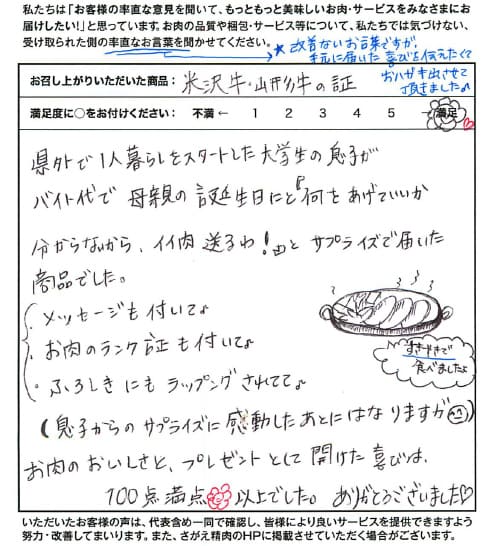 私たちは「お客様の率直な意見を聞いて、もっともっと美味しいお肉・サービスをみなさまにお
届けしたい!」と思っています。お肉の品質や梱包・サービス等について、私たちでは気づけない、
受け取られた側の率直なお言葉を聞かせてください。
★改善ないお言葉ですが、
手元に届いた喜びを伝えたくて
おハガキ出させて
頂きました♪
お召し上がりいただいた商品: 米沢牛・山形牛の証
満足度に○をお付けください: 不満 ← 1 2 3 4 5 → 満足
県外で1人暮らしをスタートした大学生の息子が
バイト代で 母親の誕生日にと『何をあげていいか
分からないから、イイ肉送るわ!』と サプライズで届いた
商品でした。
・メッセージも付いてて♪
・お肉のランク証も付いてて♪
・ふろしきにもラッピングされてて♪
すきやきで
食べましたよ
(息子からのサプライズに感動したあとにはなりますが)
お肉のおいしさと、プレゼントとして開けた喜びは、
100点満点以上でした。 ありがとうございました♡
いただいたお客様の声は、代表含め一同で確認し、皆様により良いサービスを提供できますよう
努力・改善してまいります。また、さがえ精肉のHPに掲載させていただく場合がございます。